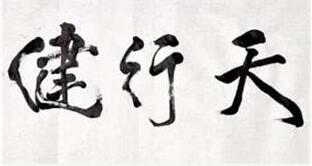 天行健